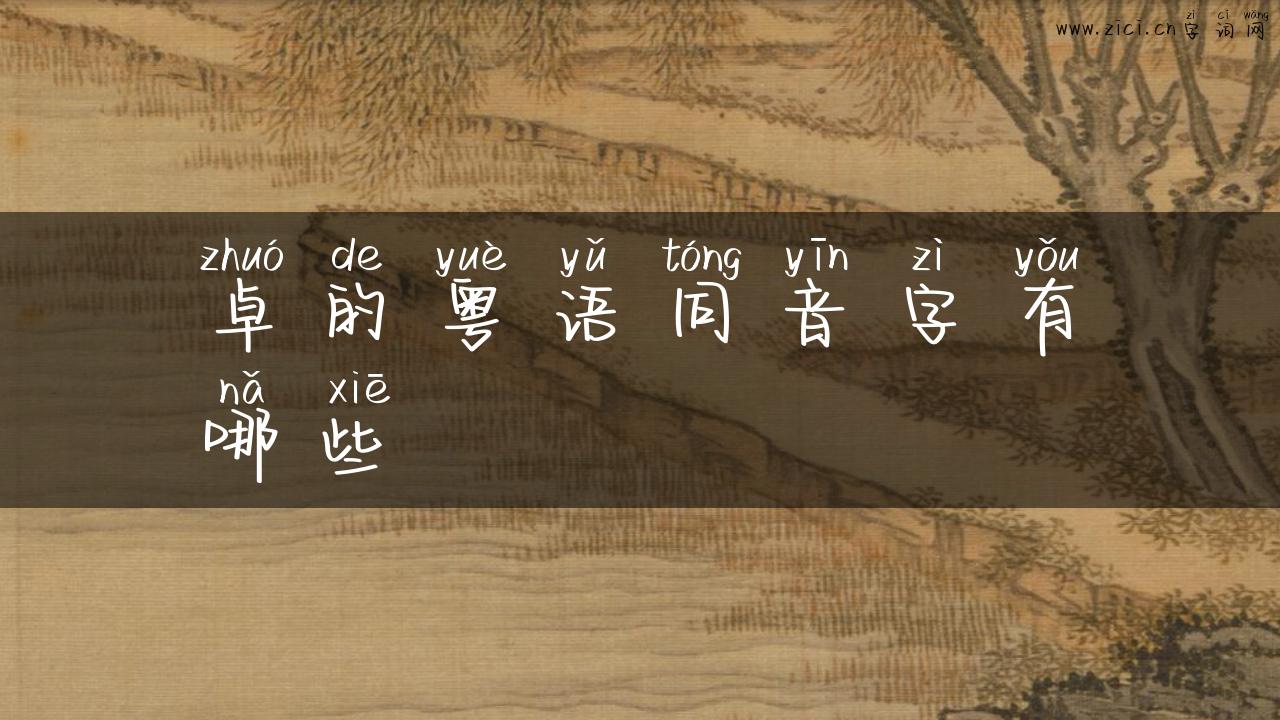 zì cí wǎng
www.zici.cn字词网
zhuó de yuè yǔ tóng yīn zì yǒu
卓的粤语同音字有
nǎ xiē
哪些